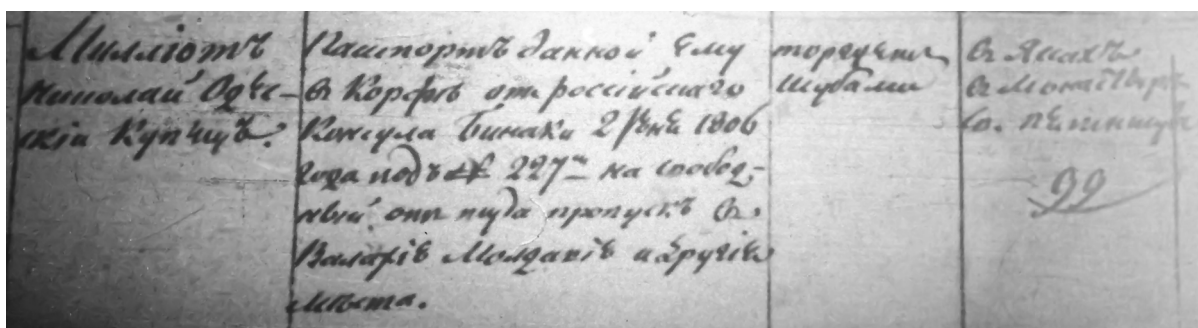 Миллiотъ
Николай Одес-
скiй Купецъ.
Пашпортъ данной Ему
въ Корфѣ от россiйскаго
Консула Бинаки 2 Iюнѣ 1806
года подъ № 227м на свобод-
ный оттуда пропускъ въ
Валахiѣ Молдавiѣ и другiѣ
мѣста.
торгуетъ
шубами
въ Яссахъ
въ
99